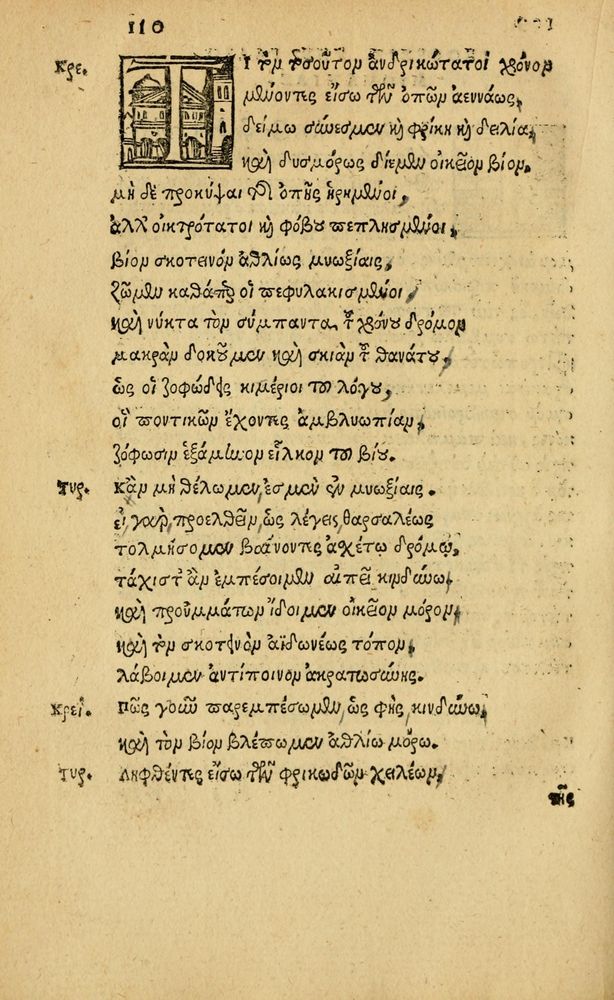 110
Κρε. Τί τὸν τοσοῦτον ἀνδρικώτατοι χρόνον
μένοντες εἴσω τῶν ὀπῶν ἀεννάως,
δείμω σύνεσμεν καὶ φρίκη καὶ δειλία,
καὶ δυσμόρως διέμεν οἰκεῖον βίον.
μὴ δὲ προκύψαι διὰ ὀπῆς ἠρημένοι,
ἀλλ' οἰκτρότατοι καὶ φόβου πεπλησμένοι,
βίον σκοτεινὸν ἀθλίως μυωξίαις,
ζῶμεν καθάπερ οἱ πεφυλακισμένοι,
καὶ νύκτα τὸν σύμπαντα τοῦ χρόνου δρόμον
μακρὰν δοκοῦμεν καὶ σκιὰν τοῦ θανάτου,
ὡς οἱ ζοφώδεις κιμέριοι τοῦ λόγου,
οἳ ποντικῶν ἔχοντες ἀμβλυωπίαν,
ζόφωσιν ἑξάμηνον εἷλκον τοῦ βίου.
Τυρ. Κἂν μὴ θέλωμεν, ἐσμὲν ἐν μυωξίαις.
εἰ γὰρ προελθεῖν, ὡς λέγεις θαρσαλέως
τολμήσομεν βαίνοντες ἀχέτω δρόμῳ,
τάχιστ' ἂν ἐμπέσοιμεν αἰπεῖ κινδύνω
καὶ προὐμμάτων ἴδοιμεν οἰκεῖον μόρον,
καὶ τὸν σκοτεινὸν ἀϊδωνέως τόπον,
λάβοιμεν ἀντίποινον ἀκρατωσύνης.
Κρεΐ. Πῶς γοῦν παρεμπέσωμεν, ὡς φῂς, κινδύνω,
καὶ τὸν βίον βλέπωμεν ἀθλίω μόρω.
Τυρ. Ληφθέντες εἴσω τῶν φρικωδῶν χειλέων,
τῆς